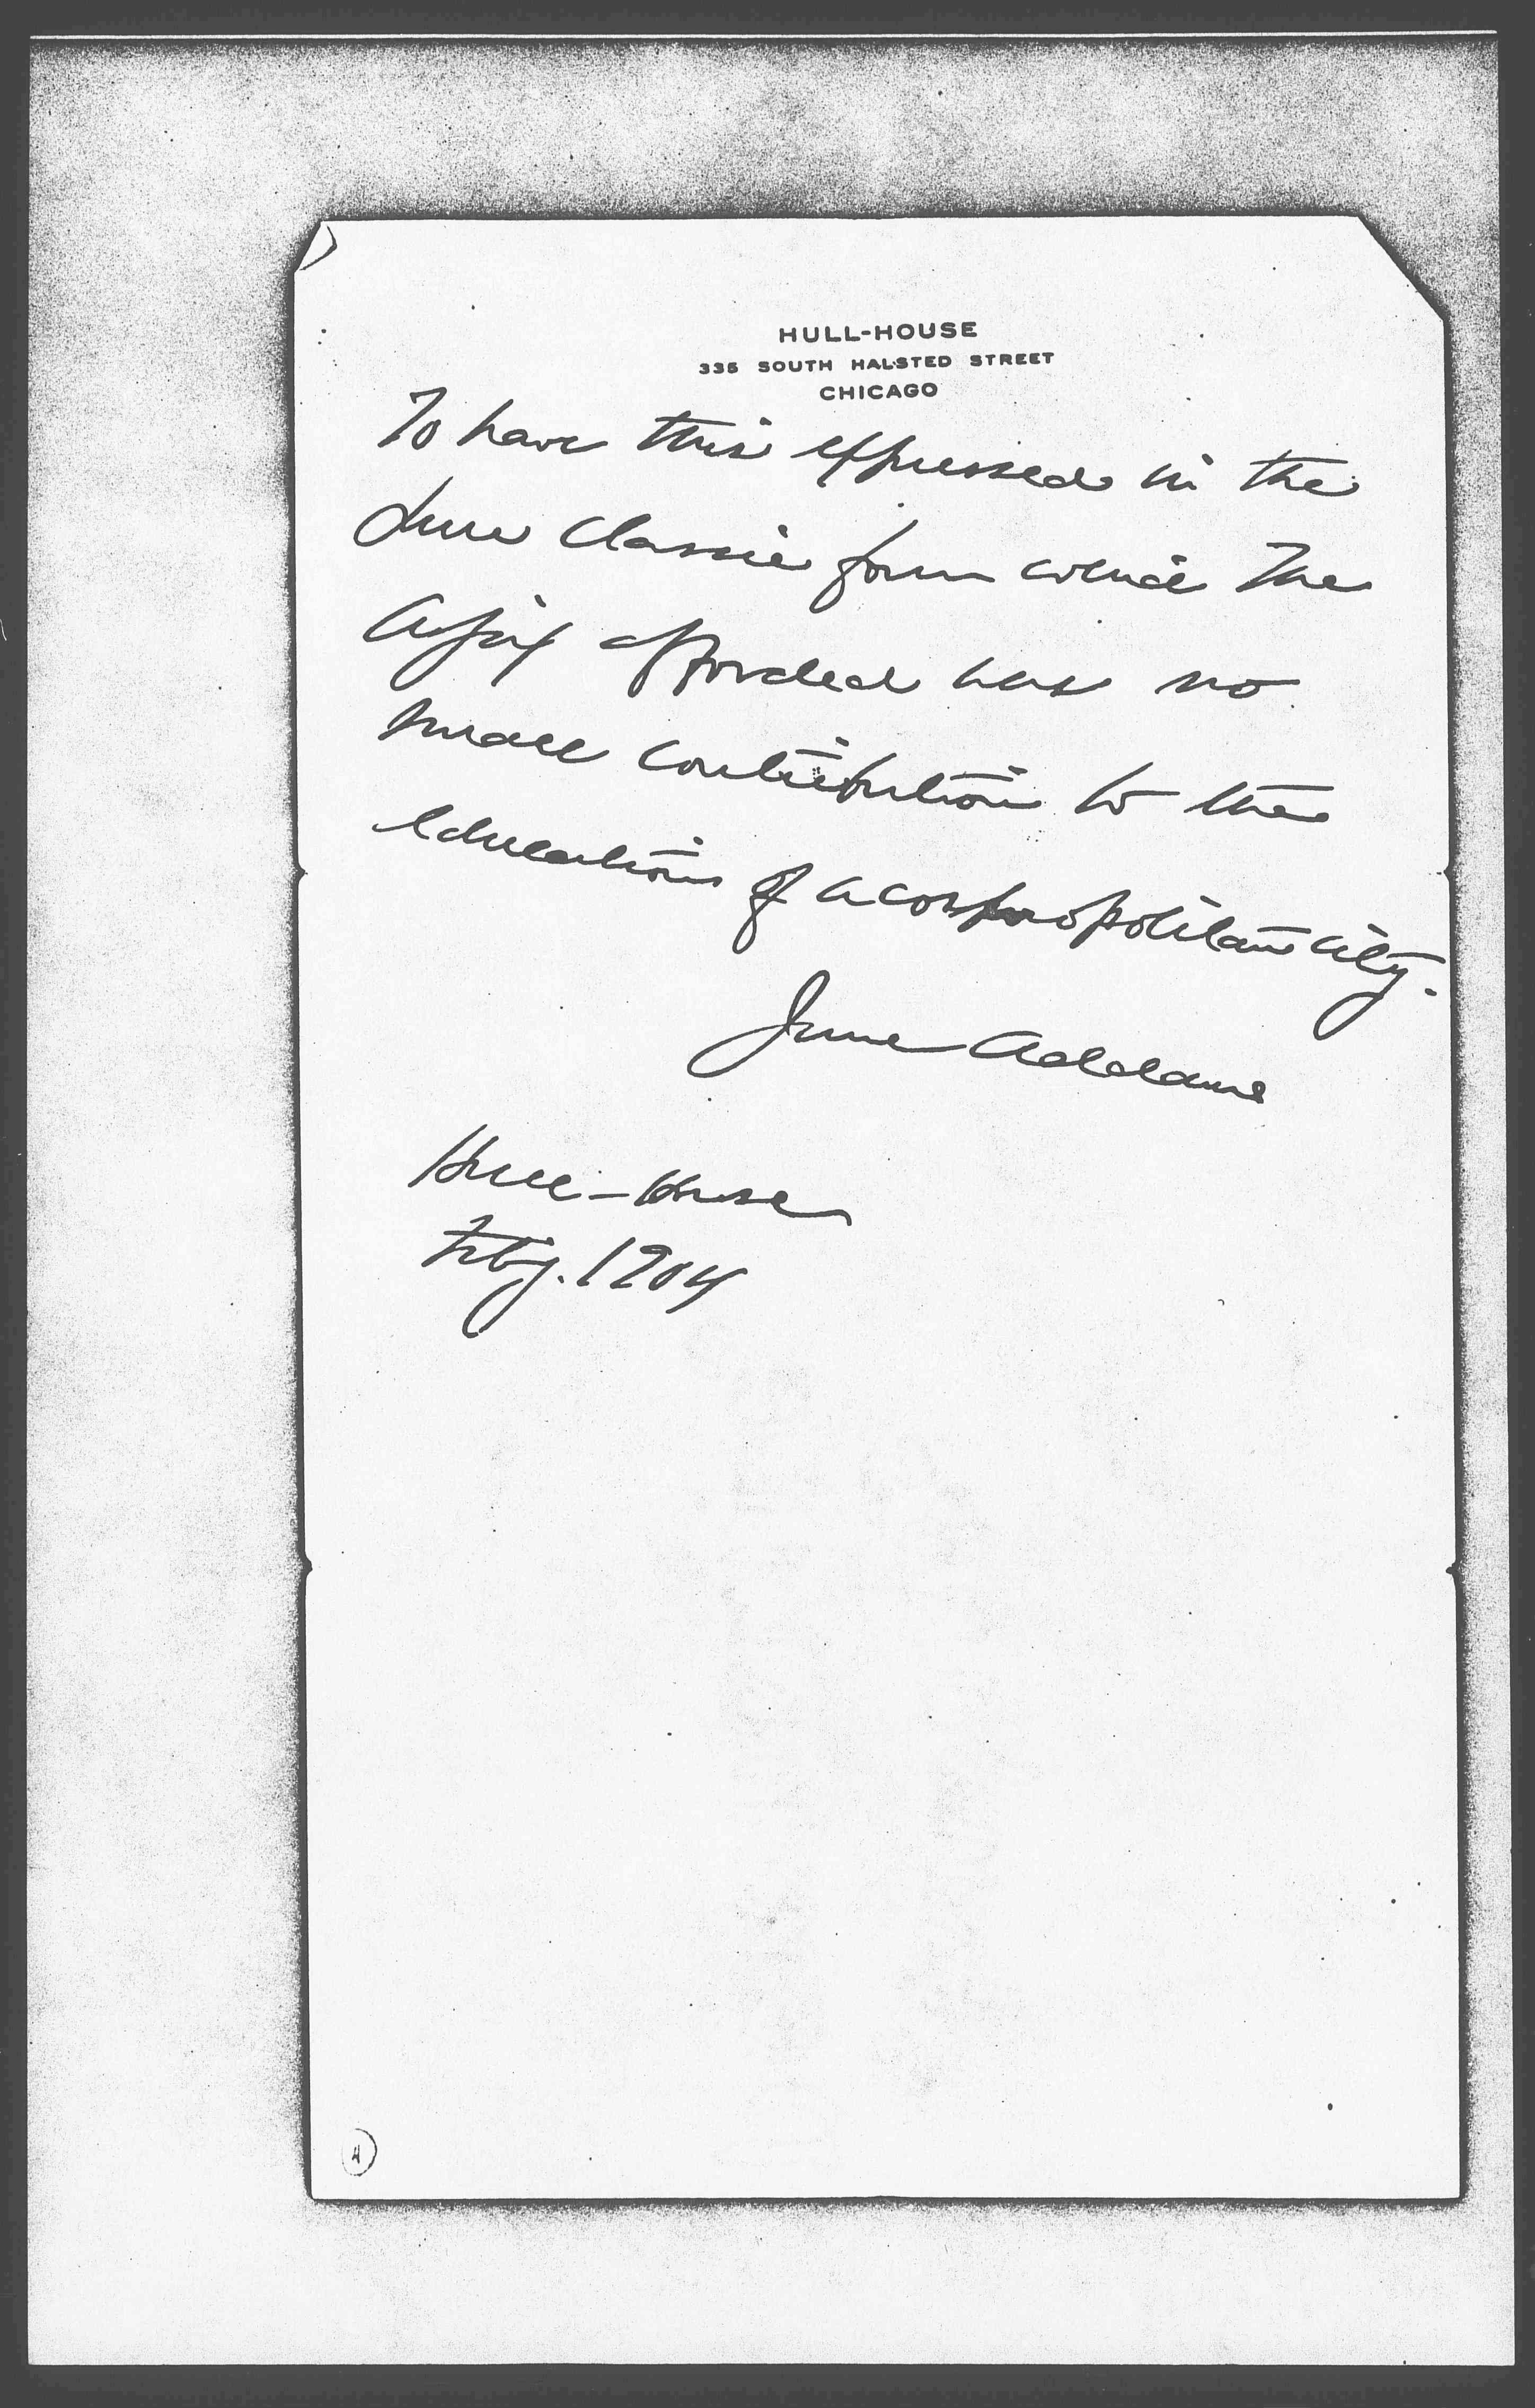 HULL-HOUSE
335 SOUTH HALSTED STREET
CHICAGO
To have this expressed in the
pure classic form which the
Ajax afforded was no
small contribution to the
education of a cosmopolitan city.
Jane Addams
Hull-House
Feby. 1904
4